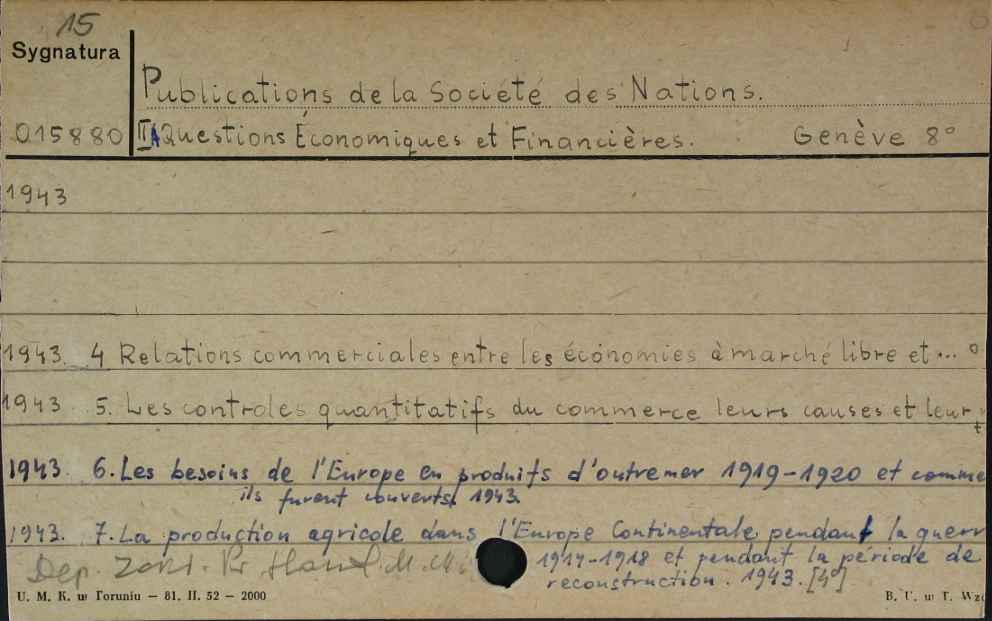 15
Sygnatura
Publications de la Société des Nations.
015880 II A Questions Économiques et Financières. Genève 8°
1943
1943. 4 Relations commerciales entre les économies à marché libre et ...
1943 5. Les controles quantitatifs du commerce leurs causes et leur
1943. 6. Les besoins de l'Europe en produits d'outremer 1919-1920 et comme
ils furent couverts. 1943.
1943. 7. La production agricole dans l'Europe Continentale pendant la guerr
1914-1918 et pendant la période de
reconstruction. 1943. [4°]
Dep. Zakł. Pr
U. M. K. w Toruniu — 81. II. 52 — 2000
B. U. w T. Wz